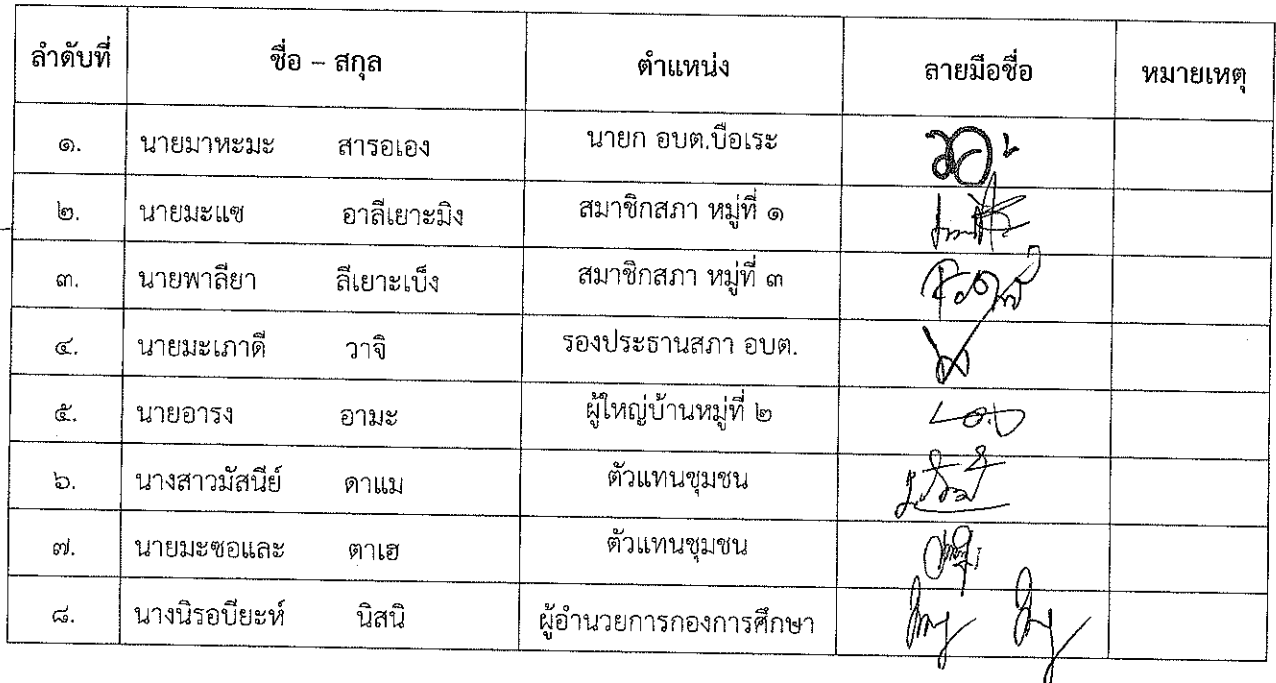 ลำดับที่ ชื่อ – สกุล ตำแหน่ง ลายมือชื่อ หมายเหตุ
๑. นายมาหะมะ สารอเอง นายก อบต.บือเระ
๒. นายมะแซ อาลีเยาะมิง สมาชิกสภา หมู่ที่ ๑
๓. นายพาลียา ลีเยาะเบ็ง สมาชิกสภา หมู่ที่ ๓
๔. นายมะเภาดี วาจิ รองประธานสภา อบต.
๕. นายอารง อามะ ผู้ใหญ่บ้านหมู่ที่ ๒
๖. นางสาวมัสนีย์ ดาแม ตัวแทนชุมชน
๗. นายมะซอและ ตาเฮ ตัวแทนชุมชน
๘. นางนิรอบียะห์ นิสนิ ผู้อำนวยการกองการศึกษา